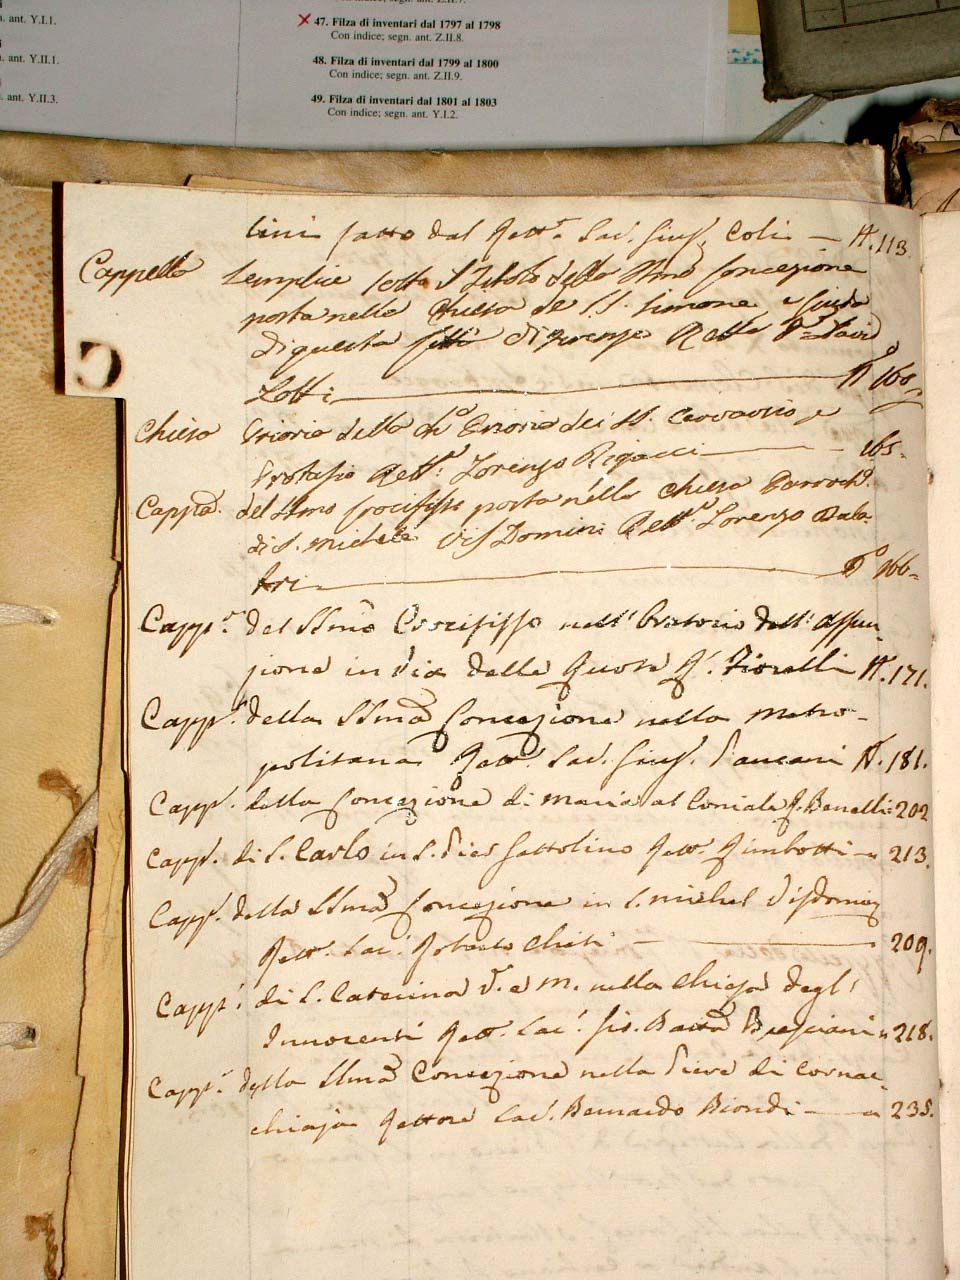 . ant. Y.I.1.
i
. ant. Y.II.1.
i
. ant. Y.II.3.
47. Filza di inventari dal 1797 al 1798
Con indice; segn. ant. Z.II.8.
48. Filza di inventari dal 1799 al 1800
Con indice; segn. ant. Z.II.9.
49. Filza di inventari dal 1801 al 1803
Con indice; segn. ant. Y.I.2.
fatto dal Rett.e Sac. Gius. Coli — N. 113
Cappella Semplice sotto il Titolo della SSma Concezione
posta nella Chiesa de' S.S. Simone e Giuda
di questa Città di Firenze Rett.e
Lotti — 160
Chiesa Prioria della dei SS. Gervasio e
Protasio Rett.e Lorenzo Rigacci — 165
Cappa. del SSmo Crocifisso posta nella Chiesa Parroch.
di S. Michele Visdomini Rett.e Lorenzo
— 166
Capp.a del SSmo Crocifisso nell' Oratorio dell' Assun-
zione in Via della Fiorelli N. 171.
Capp.a della SSma Concezione nella Metro-
politana Rett. Sac. Gius. N. 181.
Capp. della Concezione di Maria al Coniale R. Banelli 202
Capp. di S. Carlo in S. Pier Gattolino Rett. Gimbotti — 213.
Capp. della SSma Concezione in S. Michel Visdomini
Rett. Sac. Roberto Chiti — 209.
Capp. di S. Caterina V. e M. nella Chiesa degl'
Innocenti Rett. Sac. Gio. Batta Bresciani 218.
Capp. della SSma Concezione nella Pieve di Cornac-
chiaja Rettore Sac. Bernardo Biondi — 235.
O